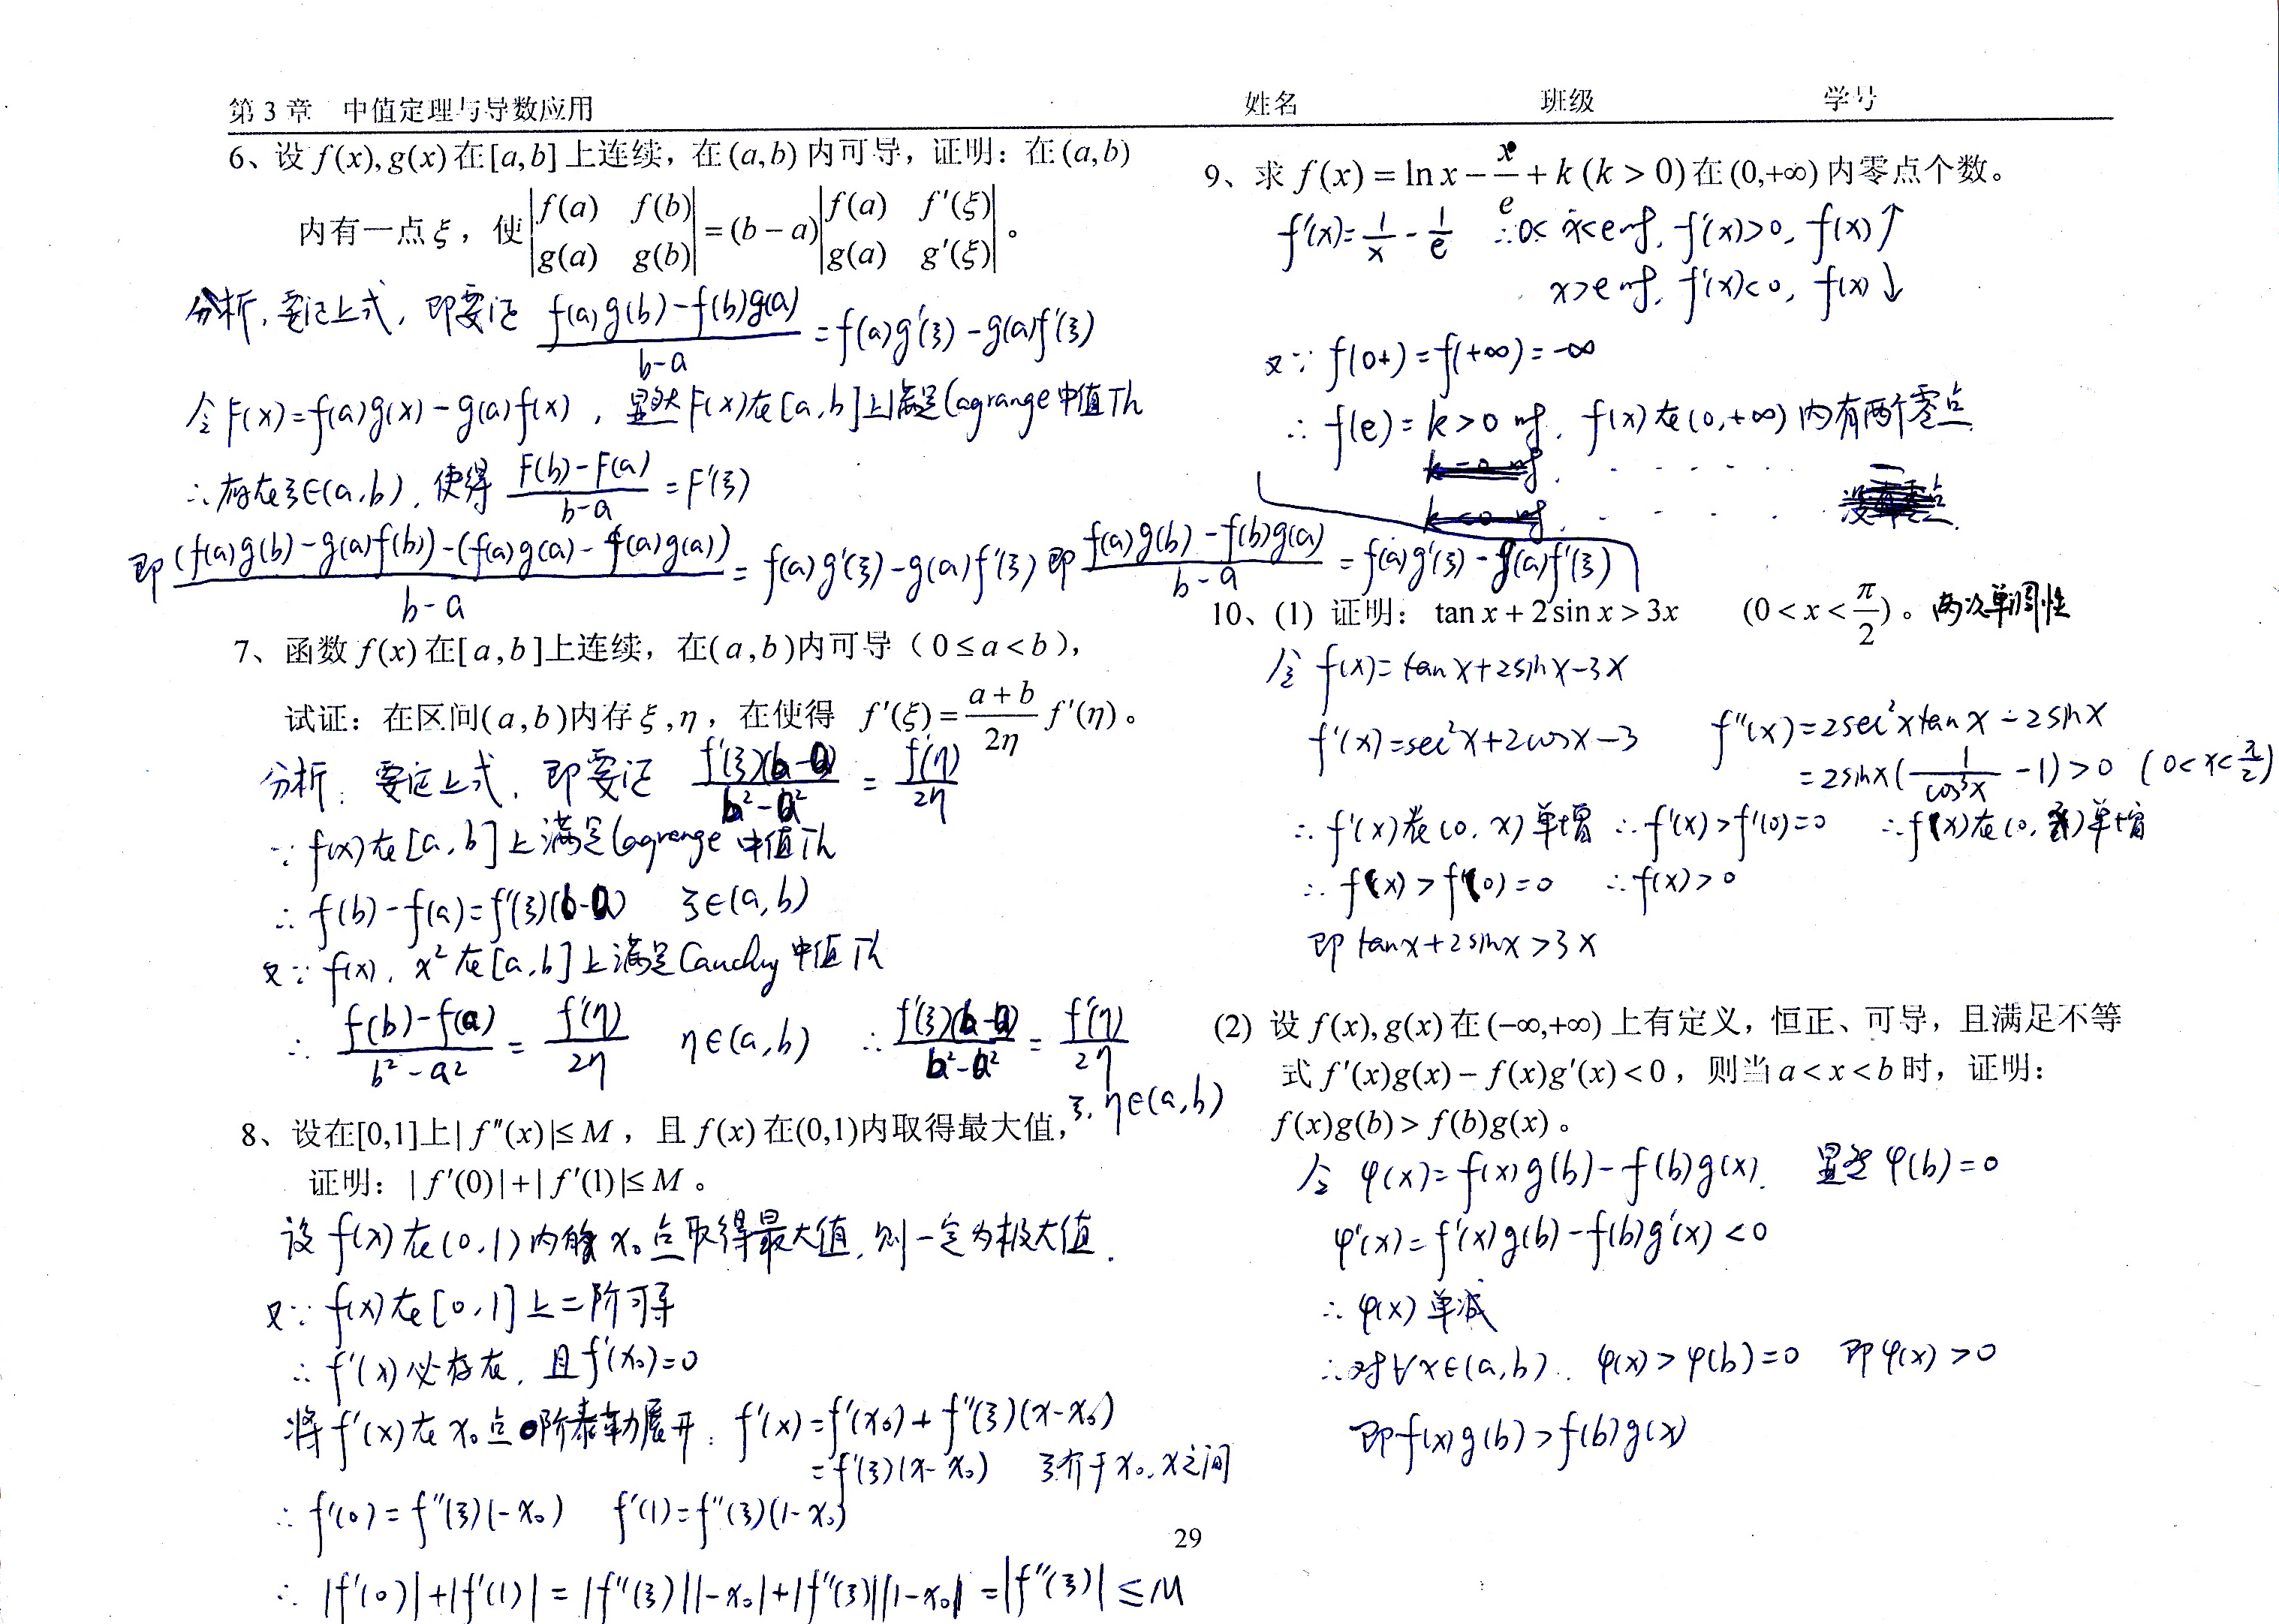 第 3 章 中值定理与导数应用 姓名 班级 学号
6、设 f(x), g(x) 在 [a,b] 上连续，在 (a,b) 内可导，证明：在 (a,b)
内有一点 ξ，使 |f(a) f(b); g(a) g(b)| = (b − a)|f(a) f'(ξ); g(a) g'(ξ)|。
分析, 要证上式, 即要证 (f(a)g(b) − f(b)g(a))/(b−a) = f(a)g'(ξ) − g(a)f'(ξ)
令 F(x) = f(a)g(x) − g(a)f(x), 显然 F(x) 在 [a,b] 上满足 Lagrange 中值 Th
∴ 存在 ξ∈(a,b), 使得 (F(b)−F(a))/(b−a) = F'(ξ)
即 ((f(a)g(b) − g(a)f(b)) − (f(a)g(a) − f(a)g(a)))/(b−a) = f(a)g'(ξ) − g(a)f'(ξ) 即 (f(a)g(b) − f(b)g(a))/(b−a) = f(a)g'(ξ) − g(a)f'(ξ)
7、函数 f(x) 在[a,b]上连续，在(a,b)内可导（0 ≤ a < b），
试证：在区间(a,b)内存 ξ,η，在使得 f'(ξ) = (a+b)/(2η) f'(η)。
分析: 要证上式, 即要证 f'(ξ)(b−a)/(b²−a²) = f'(η)/(2η)
∵ f(x) 在 [a,b] 上满足 Lagrange 中值 Th
∴ f(b) − f(a) = f'(ξ)(b−a) ξ∈(a,b)
又∵ f(x), x² 在 [a,b] 上满足 Cauchy 中值 Th
∴ (f(b)−f(a))/(b²−a²) = f'(η)/(2η) η∈(a,b) ∴ f'(ξ)(b−a)/(b²−a²) = f'(η)/(2η)
ξ, η∈(a,b)
8、设在[0,1]上| f''(x)|≤ M，且 f(x) 在(0,1)内取得最大值，
证明：| f'(0)|+| f'(1)|≤ M。
设 f(x) 在 (0,1) 内的 x₀ 点取得最大值, 则一定为极大值.
又∵ f(x) 在 [0,1] 上二阶可导
∴ f'(x) 必存在, 且 f'(x₀)=0
将 f'(x) 在 x₀ 点 阶泰勒展开: f'(x) = f'(x₀) + f''(ξ)(x−x₀)
= f''(ξ)(x−x₀) ξ介于 x₀, x 之间
∴ f'(0) = f''(ξ)(−x₀) f'(1) = f''(ξ)(1−x₀)
∴ |f'(0)|+|f'(1)| = |f''(ξ)||−x₀|+|f''(ξ)||1−x₀| = |f''(ξ)| ≤ M
9、求 f(x) = ln x − x/e + k (k > 0) 在 (0,+∞) 内零点个数。
f'(x) = 1/x − 1/e ∴ 0< x<e 时, f'(x)>0, f(x)↑
x>e 时, f'(x)<0, f(x)↓
又∵ f(0+) = f(+∞) = −∞
∴ f(e) = k > 0 时, f(x) 在 (0,+∞) 内有两个零点
10、(1) 证明：tan x + 2 sin x > 3x (0 < x < π/2)。两次单调性
令 f(x) = tan x + 2sin x − 3x
f'(x) = sec²x + 2cos x − 3 f''(x) = 2sec²x tan x − 2sin x
= 2sin x (1/cos³x − 1) > 0 (0< x< π/2)
∴ f'(x) 在 (0, x) 单增 ∴ f'(x) > f'(0) = 0 ∴ f(x) 在 (0, ) 单增
∴ f(x) > f(0) = 0 ∴ f(x) > 0
即 tan x + 2sin x > 3x
(2) 设 f(x), g(x) 在 (−∞,+∞) 上有定义，恒正、可导，且满足不等
式 f'(x)g(x) − f(x)g'(x) < 0，则当 a < x < b 时，证明：
f(x)g(b) > f(b)g(x)。
令 φ(x) = f(x)g(b) − f(b)g(x). 显然 φ(b) = 0
φ'(x) = f'(x)g(b) − f(b)g'(x) < 0
∴ φ(x) 单减
∴ 对∀x∈(a,b). φ(x) > φ(b) = 0 即 φ(x) > 0
即 f(x)g(b) > f(b)g(x)
29